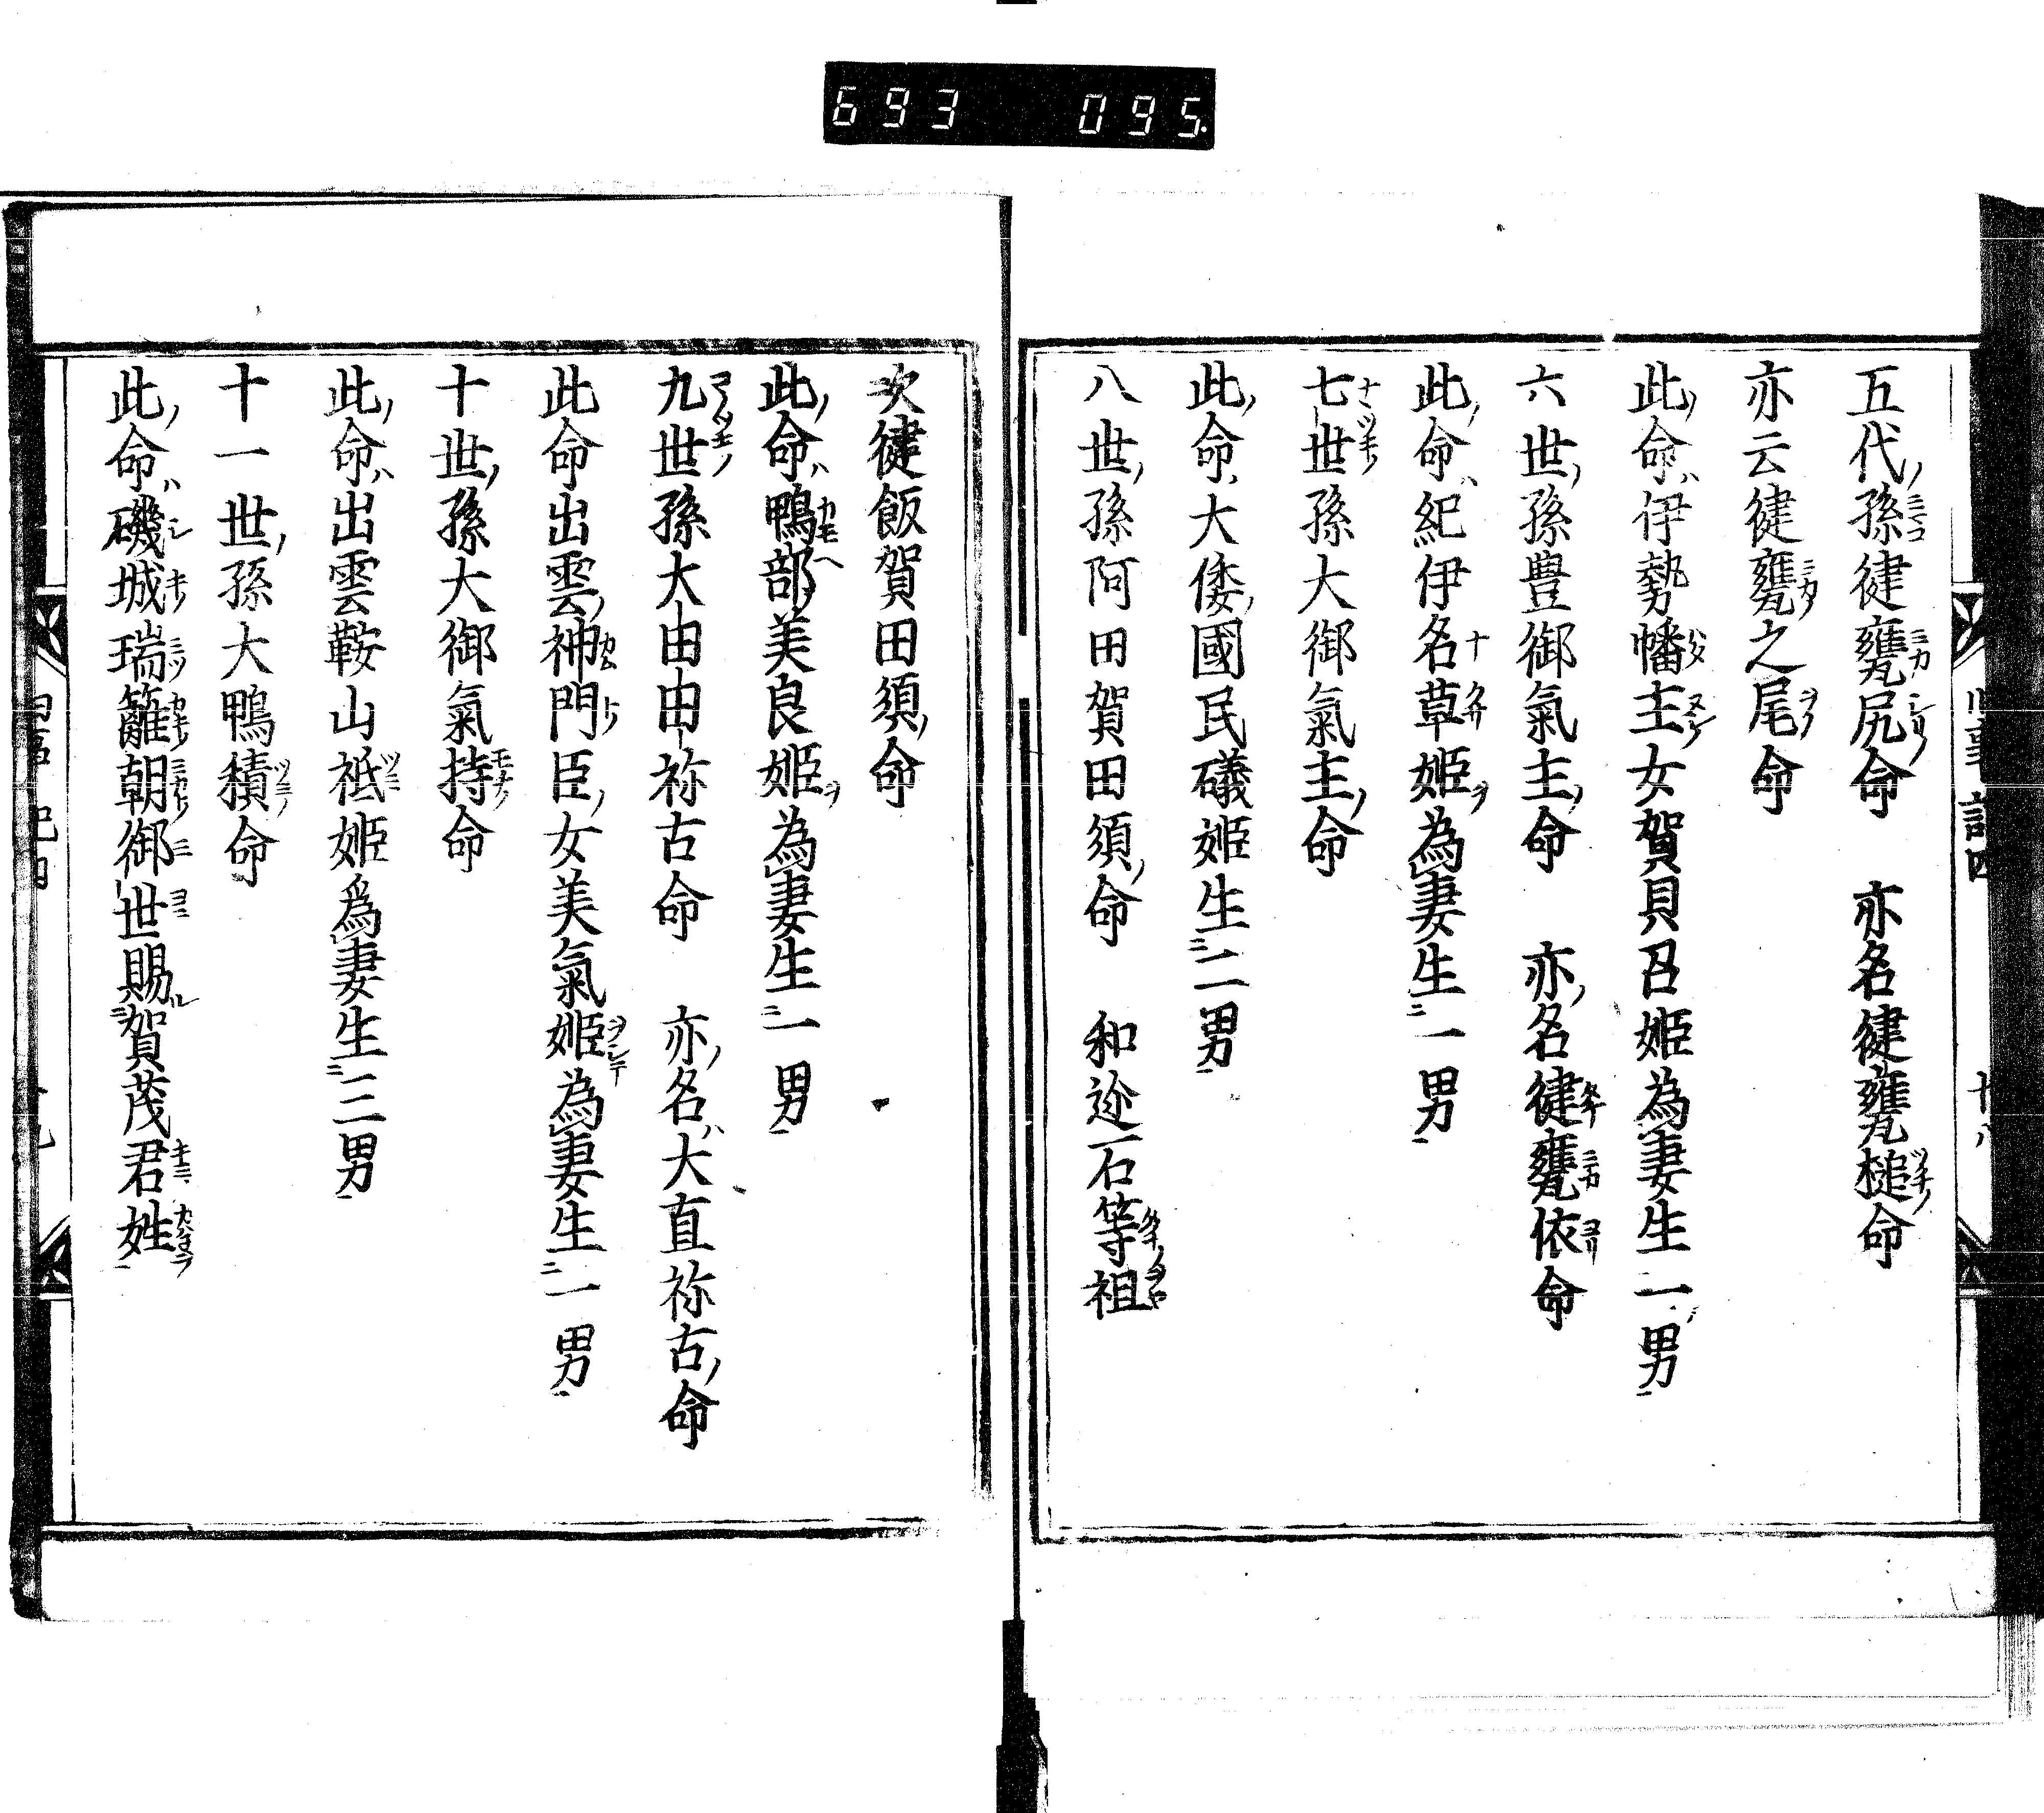 693 095.
五代孫徤甕尻命 亦名徤甕槌命
亦云徤甕之尾命
此命伊勢幡主女賀貝呂姫為妻生一男
六世孫豊御氣主命 亦名徤甕依命
此命紀伊名草姫為妻生一男
七世孫大御氣主命
此命大倭國民礒姫生二男
八世孫阿田賀田須命 和迩石等祖
次徤飯賀田須命
此命鴨部美良姫為妻生一男
九世孫大田田祢古命 亦名大直祢古命
此命出雲神門臣女美氣姫為妻生一男
十世孫大御氣持命
此命出雲鞍山祇姫爲妻生三男
十一世孫大鴨積命
此命磯城瑞籬朝御世賜賀茂君姓